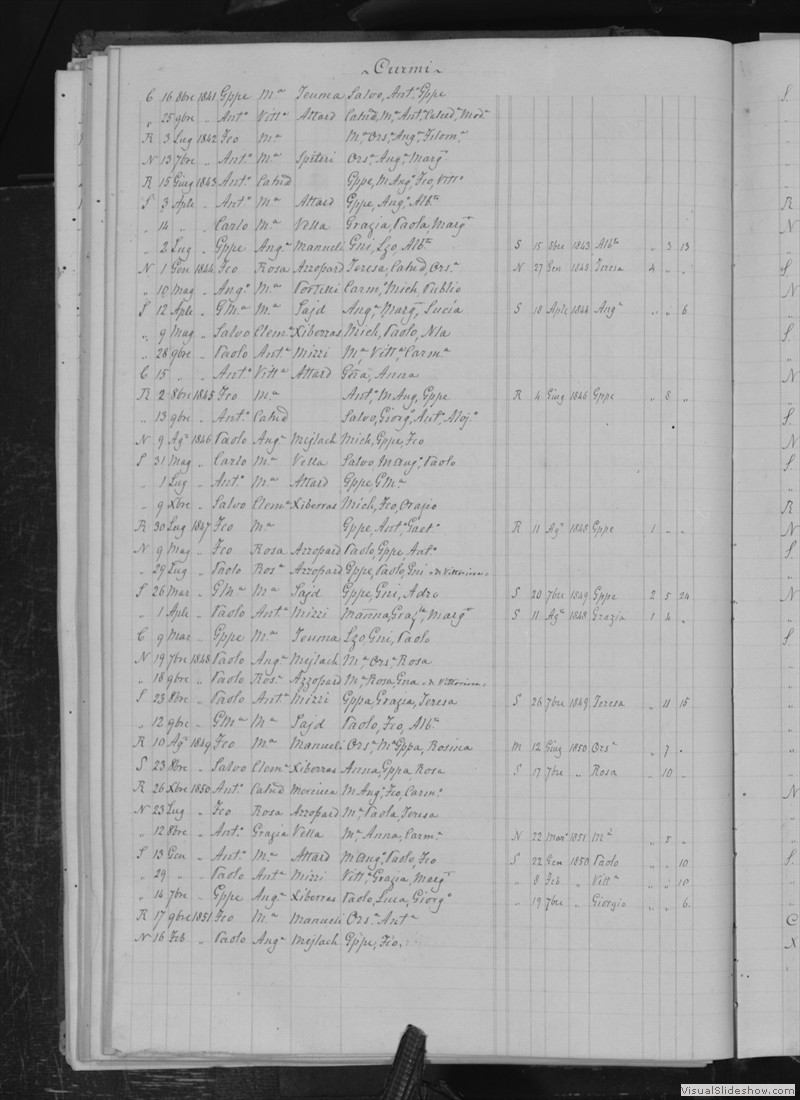 ~Curmi~
C 16 8bre 1841 Gppe Mª Teuma Salvo, Antº Gppe
„ 25 9bre „ Antº Vittª Attard Catnd, Mª, Antª, Catnd,
R 3 Lug 1842 Fco Mª Mª, Orsª, Angª, Filomª
N 13 7bre „ Antº Mª Spiteri Orsª, Angª, Margª
R 15 Giug 1843 Antº Catnd Gppe, M Angº, Fco, Vittº
S 3 Aple „ Antº Mª Attard Gppe, Angº, Albtº
„ 14 „ „ Carlo Mª Vella Grazia, Paola, Margª
„ 2 Lug „ Gppe Angª Manueli Gni, Lzo, Albtº S 15 8bre 1843 Albtº „ 3 13
N 1 Gen 1844 Fco Rosa Azzopard Teresa, Catnd, Orsª N 27 Gen 1848 Teresa 4 „ „
„ 10 Mag „ Angº Mª Portelli Carmº, Mich, Publio
S 12 Aple „ GMª Mª Sajd Angª, Margª, Lucia S 18 Aple 1844 Angª „ „ 6
„ 9 Mag „ Salvo Clemª Xiberras Mich, Paolo, Nla
„ 28 9bre „ Paolo Antª Mizzi Mª Vittª, Carmª
C 15 „ „ Antº Vittª Attard Anna
R 2 8bre 1845 Fco Mª Antº, M Ang, Gppe R 4 Giug 1846 Gppe „ 8 „
„ 13 9bre „ Antº Catnd Salvo, Giorgº, Antº, Alojº
N 9 Agº 1846 Paolo Angª Mejlach Mich, Gppe, Fco
S 31 Mag „ Carlo Mª Vella Salvo, M Angº, Paolo
„ 1 Lug „ Antº Mª Attard Gppe, GMª
„ 9 Xbre „ Salvo Clemª Xiberras Mich, Fco, Orazio
R 30 Lug 1847 Fco Mª Gppe, Antº, Gaetº R 11 Agº 1848 Gppe 1 „ „
N 9 Mag „ Fco Rosa Azzopard Paolo, Gppe, Antº
„ 29 Lug „ Paolo Rosª Azzopard Gppe, Paolo, Gni
S 26 Mar „ GMª Mª Sajd Gppe, Gni, Adro S 20 7bre 1849 Gppe 2 5 24
„ 1 Aple „ Paolo Antª Mizzi Marina, Grazª, Margª S 11 Agº 1848 Grazia 1 4 „
C 9 Mar „ Gppe Mª Teuma Lzo, Gni, Paolo
N 19 7bre 1848 Paolo Angª Mejlach Mª Orsª Rosa
„ 18 9bre „ Paolo Rosª Azzopard Mª Rosa, Gna
S 23 8bre „ Paolo Antª Mizzi Gppa, Grazia, Teresa S 26 7bre 1849 Teresa „ 11 15
„ 12 9bre „ GMª Mª Sajd Paolo, Fco, Albtº
R 10 Agº 1849 Fco Mª Manueli Orsª Mª Gppa, Rosina M 12 Giug 1850 Orsª „ 7 „
S 23 8bre „ Salvo Clemª Xiberras Anna, Gppa, Rosa S 17 7bre „ Rosa „ 10 „
R 26 Xbre 1850 Antº Catnd M Angº, Fco, Carmº
N 23 Lug „ Fco Rosa Azzopard Mª, Paola, Teresa
„ 12 8bre „ Antº Grazia Vella Mª, Anna, Carmª N 22 Marº 1851 Mª „ 5 „
S 13 Gen „ Antº Mª Attard M Angº, Paolo, Fco S 22 Gen 1850 Paolo „ „ 10
„ 29 „ „ Paolo Antª Mizzi Vittª, Grazia, Margª „ 8 Feb „ Vittª „ „ 10
„ 14 7bre „ Gppe Angª Xiberras Paolo, Luca, Giorgº „ 19 7bre „ Giorgio „ „ 6
R 17 9bre 1851 Fco Mª Manueli Orsª Antª
N 16 Feb „ Paolo Angª Mejlach Gppe, Fco
VisualSlideshow.com